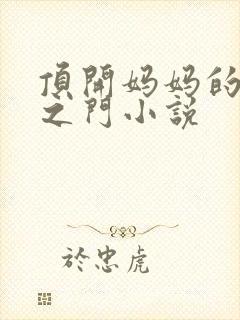 頂開妈妈的
之門小説
於忠虎